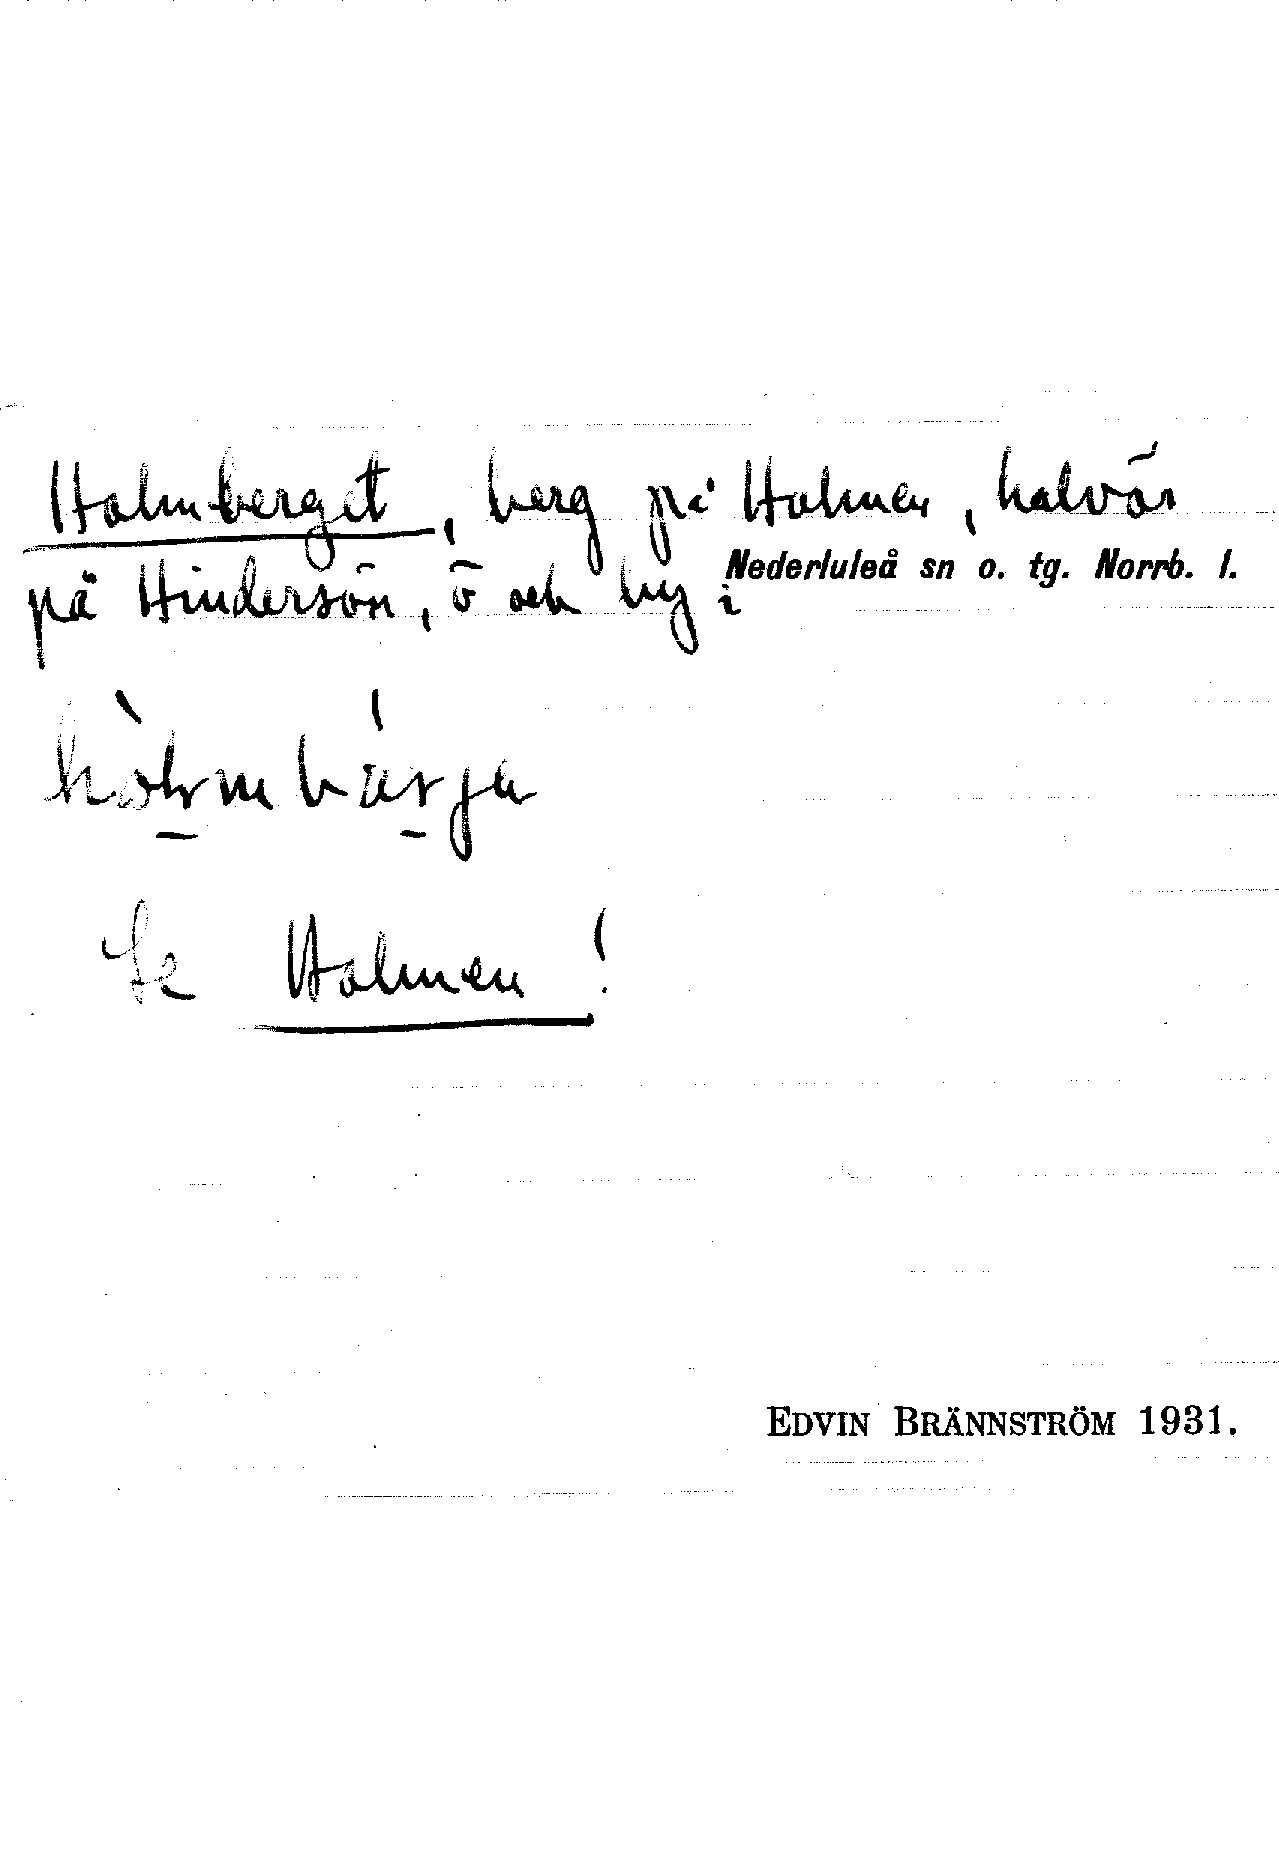 Holmberget, berg på Holmen, halvön
på Hindersön, ö och by i Nederluleå sn o. tg. Norrb. l.
Se Holmen!
EDVIN BRÄNNSTRÖM 1931.